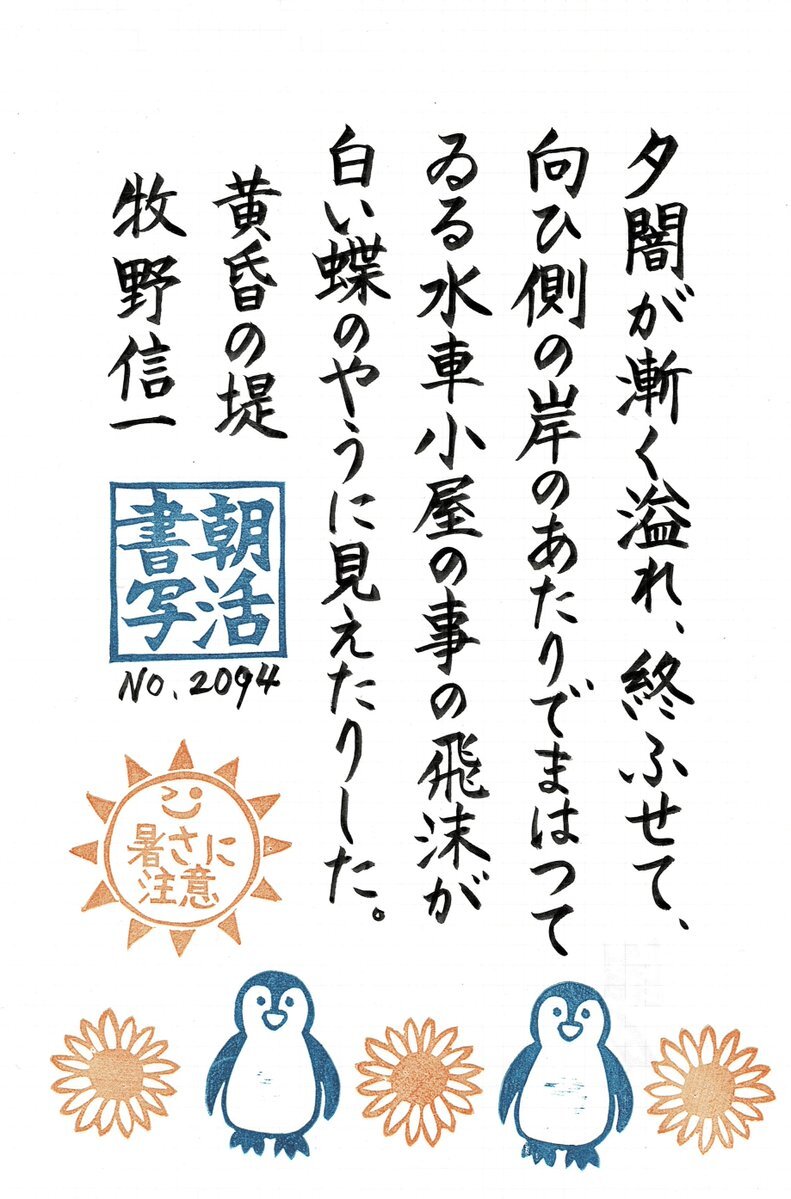 夕闇が漸く溢れ、終ふせて、
向ひ側の岸のあたりでまはつて
ゐる水車小屋の事の飛沫が
白い蝶のやうに見えたりした。
黄昏の堤
牧野信一
朝活
書写
No. 2094
暑さに
注意